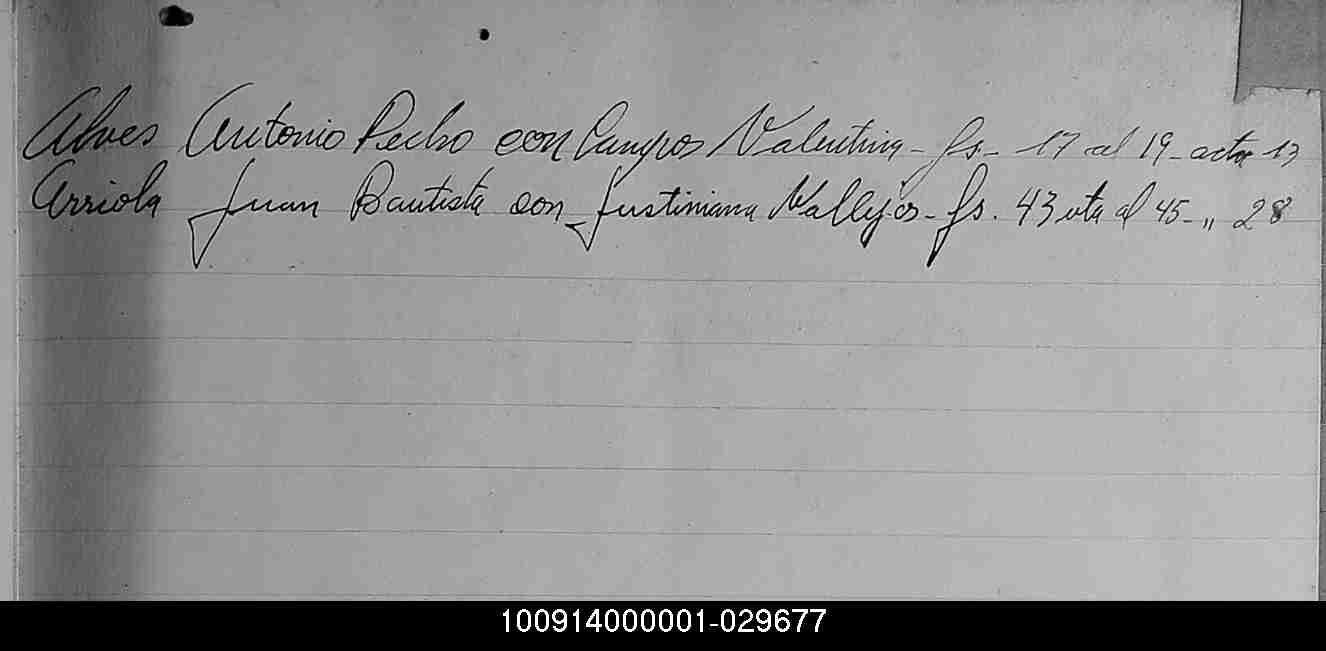 Alves Antonio Pedro con Campos Valentina - fs - 17 al 19 - acta 13
Arriola Juan Bautista con Justiniana Vallejos - fs. 43 vta al 45 - „ 28
100914000001-029677